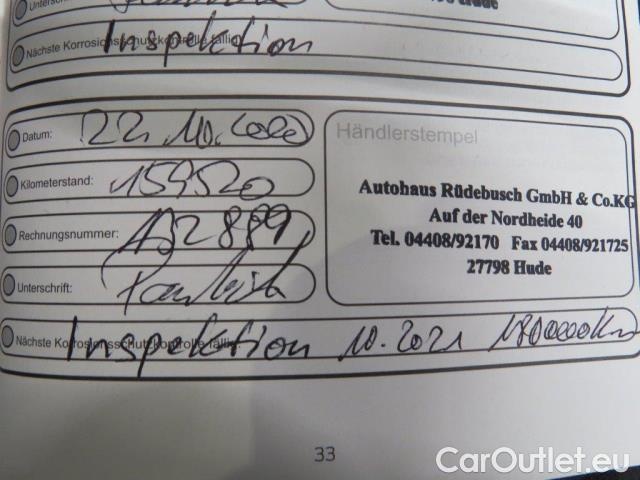 Unterschrift:
Nächste Korrosionsschutzkontrolle fällig:
Inspektion
Datum: 22.10.2020
Kilometerstand: 159520
Rechnungsnummer:
Unterschrift:
Nächste Korrosionsschutzkontrolle fällig:
Inspektion 10.2021 180000km
Händlerstempel
Autohaus Rüdebusch GmbH & Co.KG
Auf der Nordheide 40
Tel. 04408/92170 Fax 04408/921725
27798 Hude
33
CarOutlet.eu